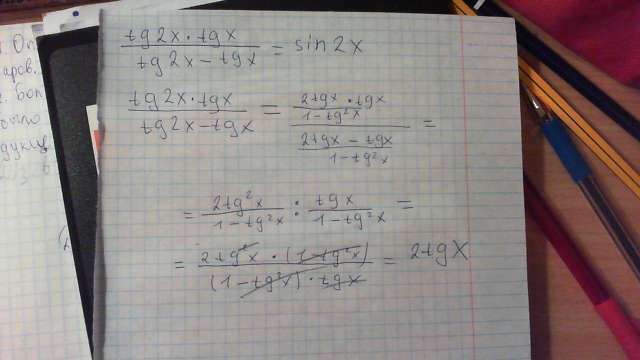 tg2x·tgx / tg2x-tgx = sin2x
tg2x·tgx / tg2x-tgx = 2tgx / 1-tg²x · tgx / 2tgx-tgx / 1-tg²x =
= 2tg²x / 1-tg²x : tgx / 1-tg²x =
= 2tg²x · (1-tg²x) / (1-tg²x) · tgx = 2tgx